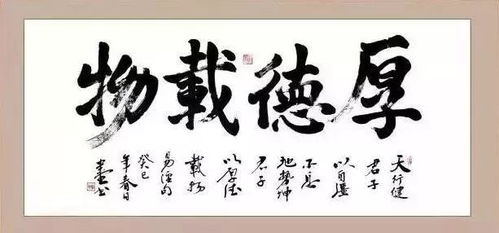 厚德載物
天行健
君子
以自强
不息
地勢坤
君子
以厚德
載物
易經句
癸巳
年春日